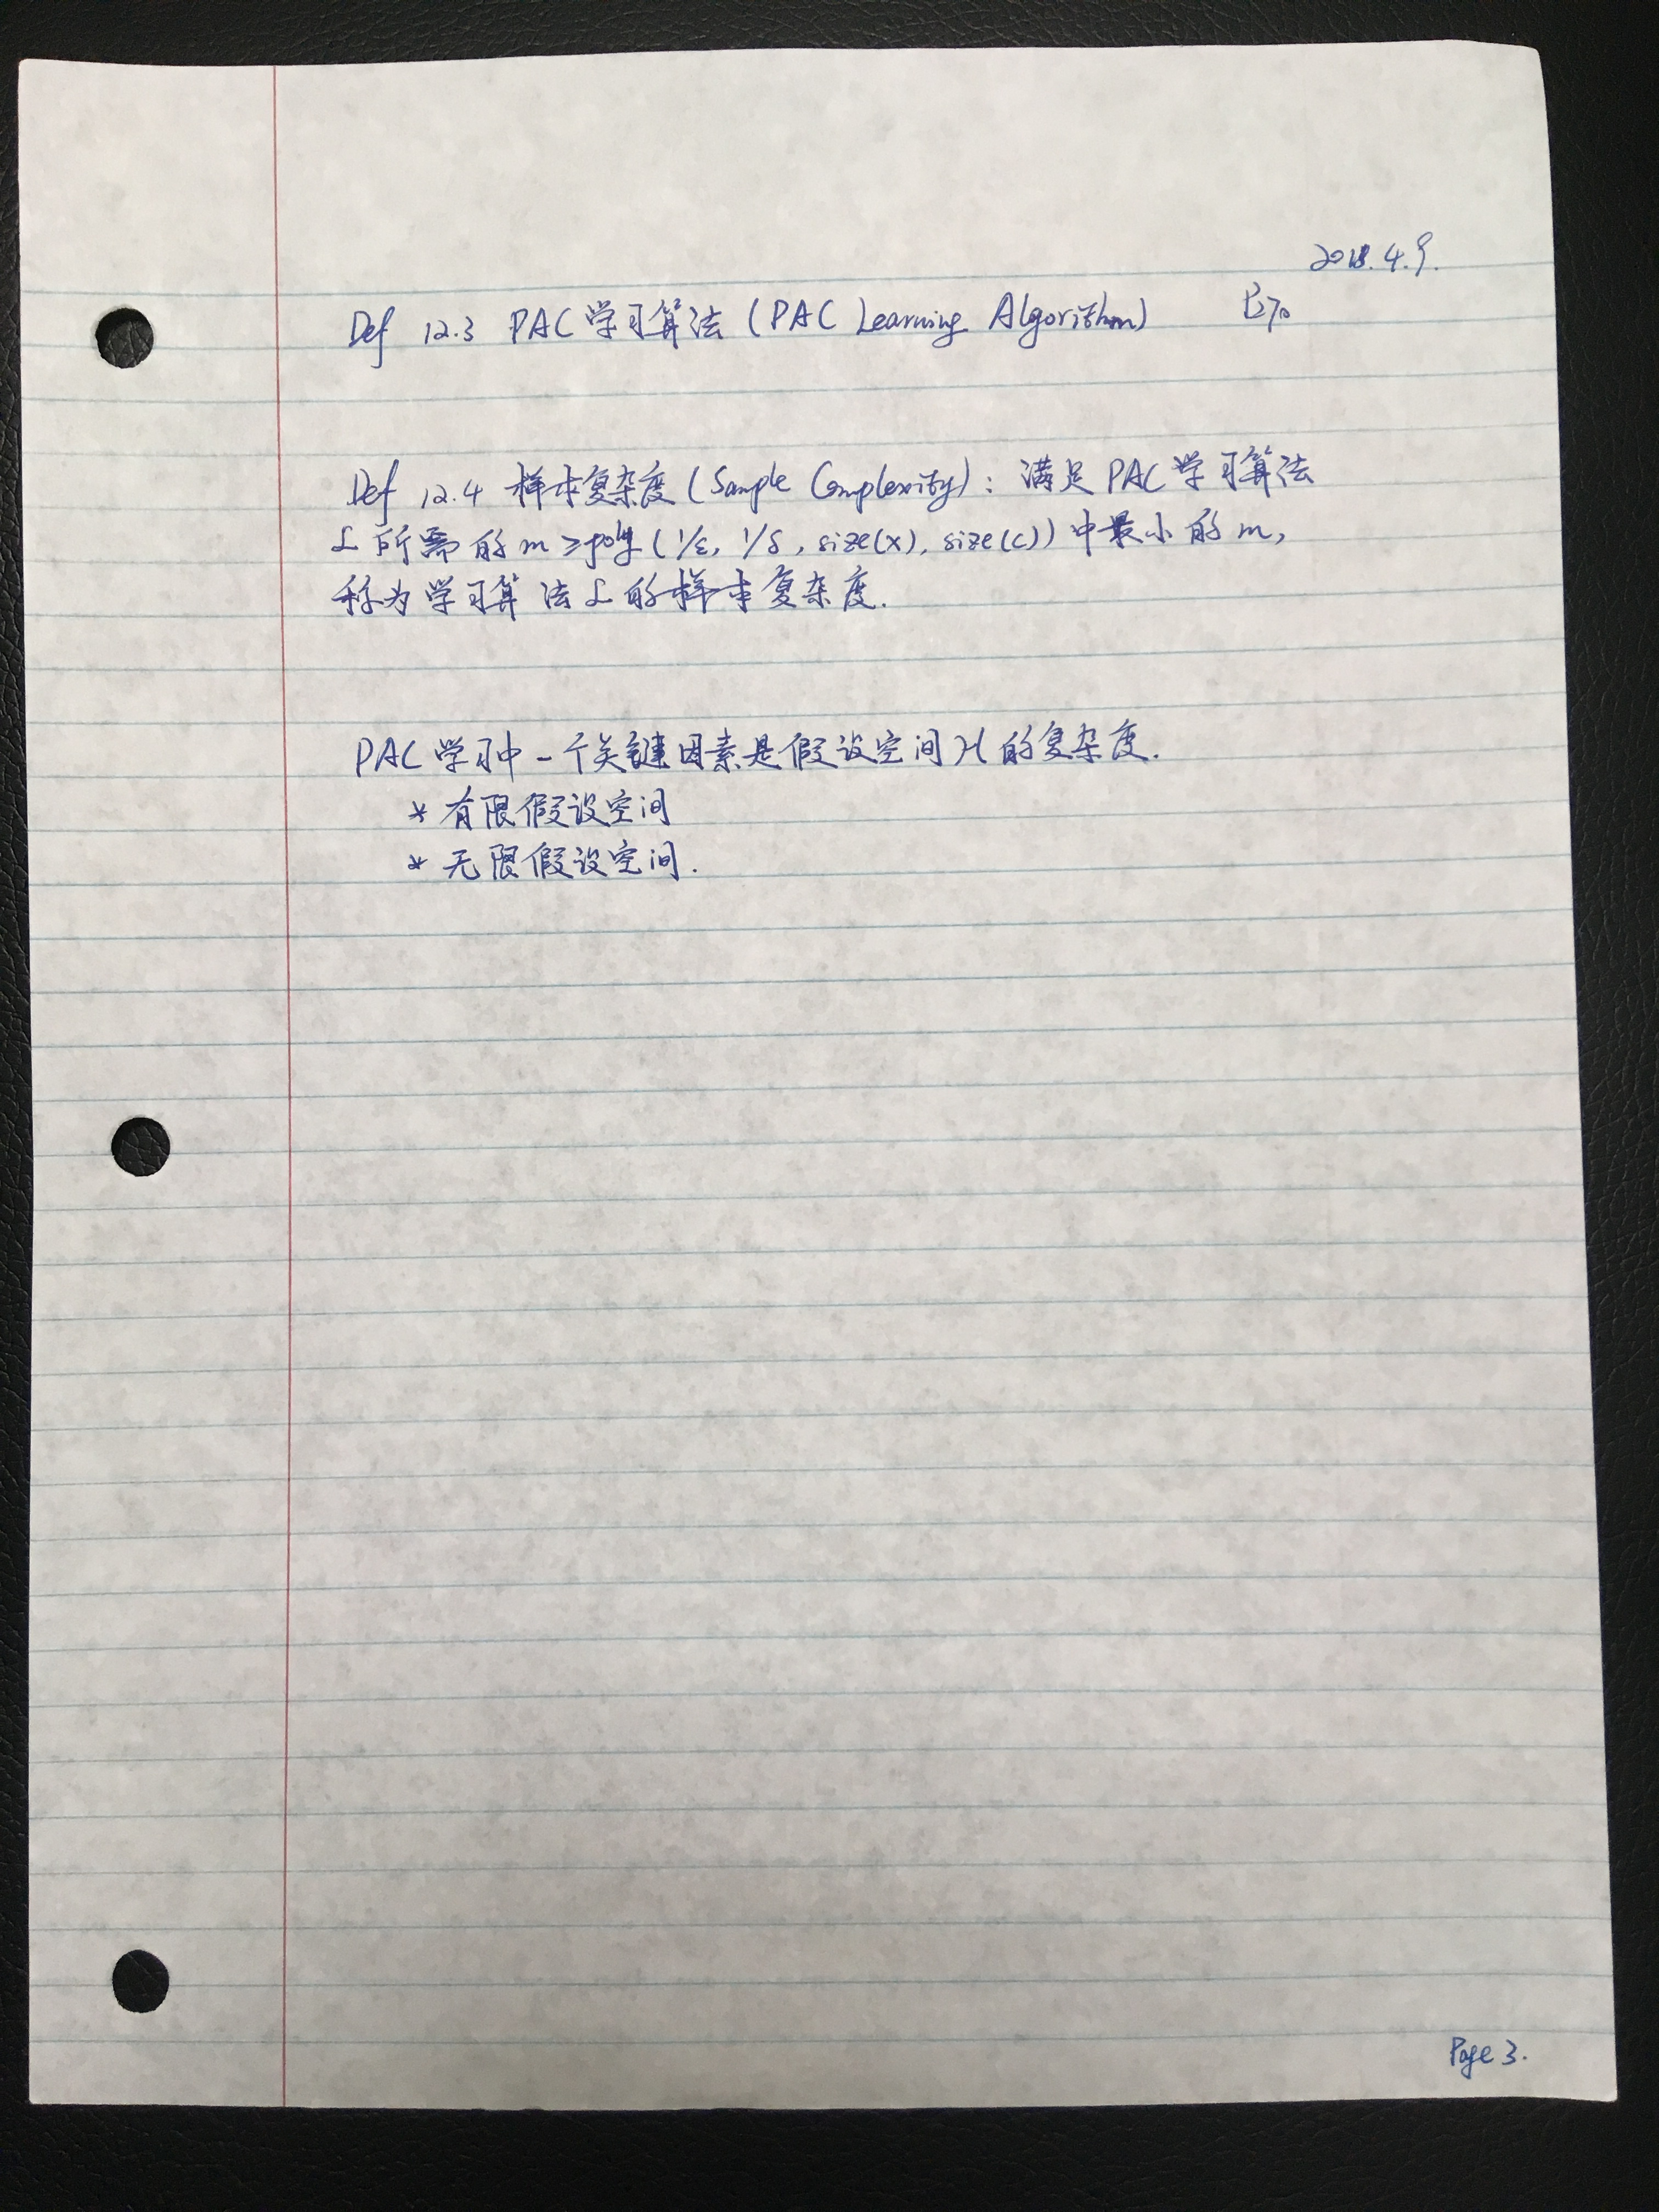 2018.4.9.
Def 12.3 PAC学习算法 (PAC Learning Algorithm) P270
Def 12.4 样本复杂度 (Sample Complexity): 满足PAC学习算法
𝔏所需的 m ≥ poly (1/ε, 1/δ, size(x), size(c)) 中最小的 m,
称为学习算法𝔏的样本复杂度.
PAC学习中一个关键因素是假设空间ℋ的复杂度.
* 有限假设空间
* 无限假设空间.
Page 3.